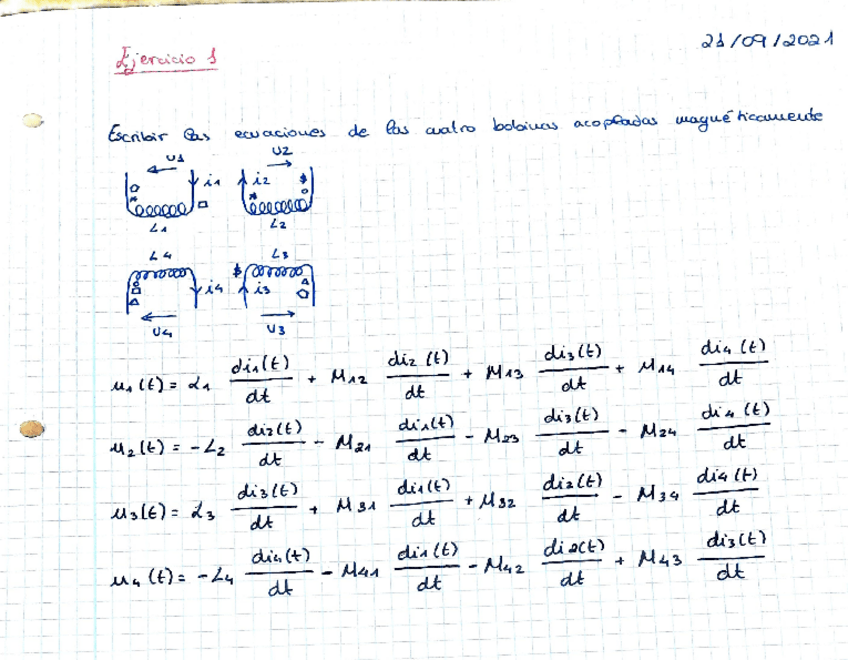 21/09/2021
Ejercicio 1
Escribir las ecuaciones de las cuatro bobinas acopladas magnéticamente
U1 U2
i1 i2
L1 L2
L4 L3
i4 i3
U4 U3
u₁(t) = L₁ di₁(t)/dt + M₁₂ di₂(t)/dt + M₁₃ di₃(t)/dt + M₁₄ di₄(t)/dt
u₂(t) = -L₂ di₂(t)/dt - M₂₁ di₁(t)/dt - M₂₃ di₃(t)/dt - M₂₄ di₄(t)/dt
u₃(t) = L₃ di₃(t)/dt + M₃₁ di₁(t)/dt + M₃₂ di₂(t)/dt - M₃₄ di₄(t)/dt
u₄(t) = -L₄ di₄(t)/dt - M₄₁ di₁(t)/dt - M₄₂ di₂(t)/dt + M₄₃ di₃(t)/dt